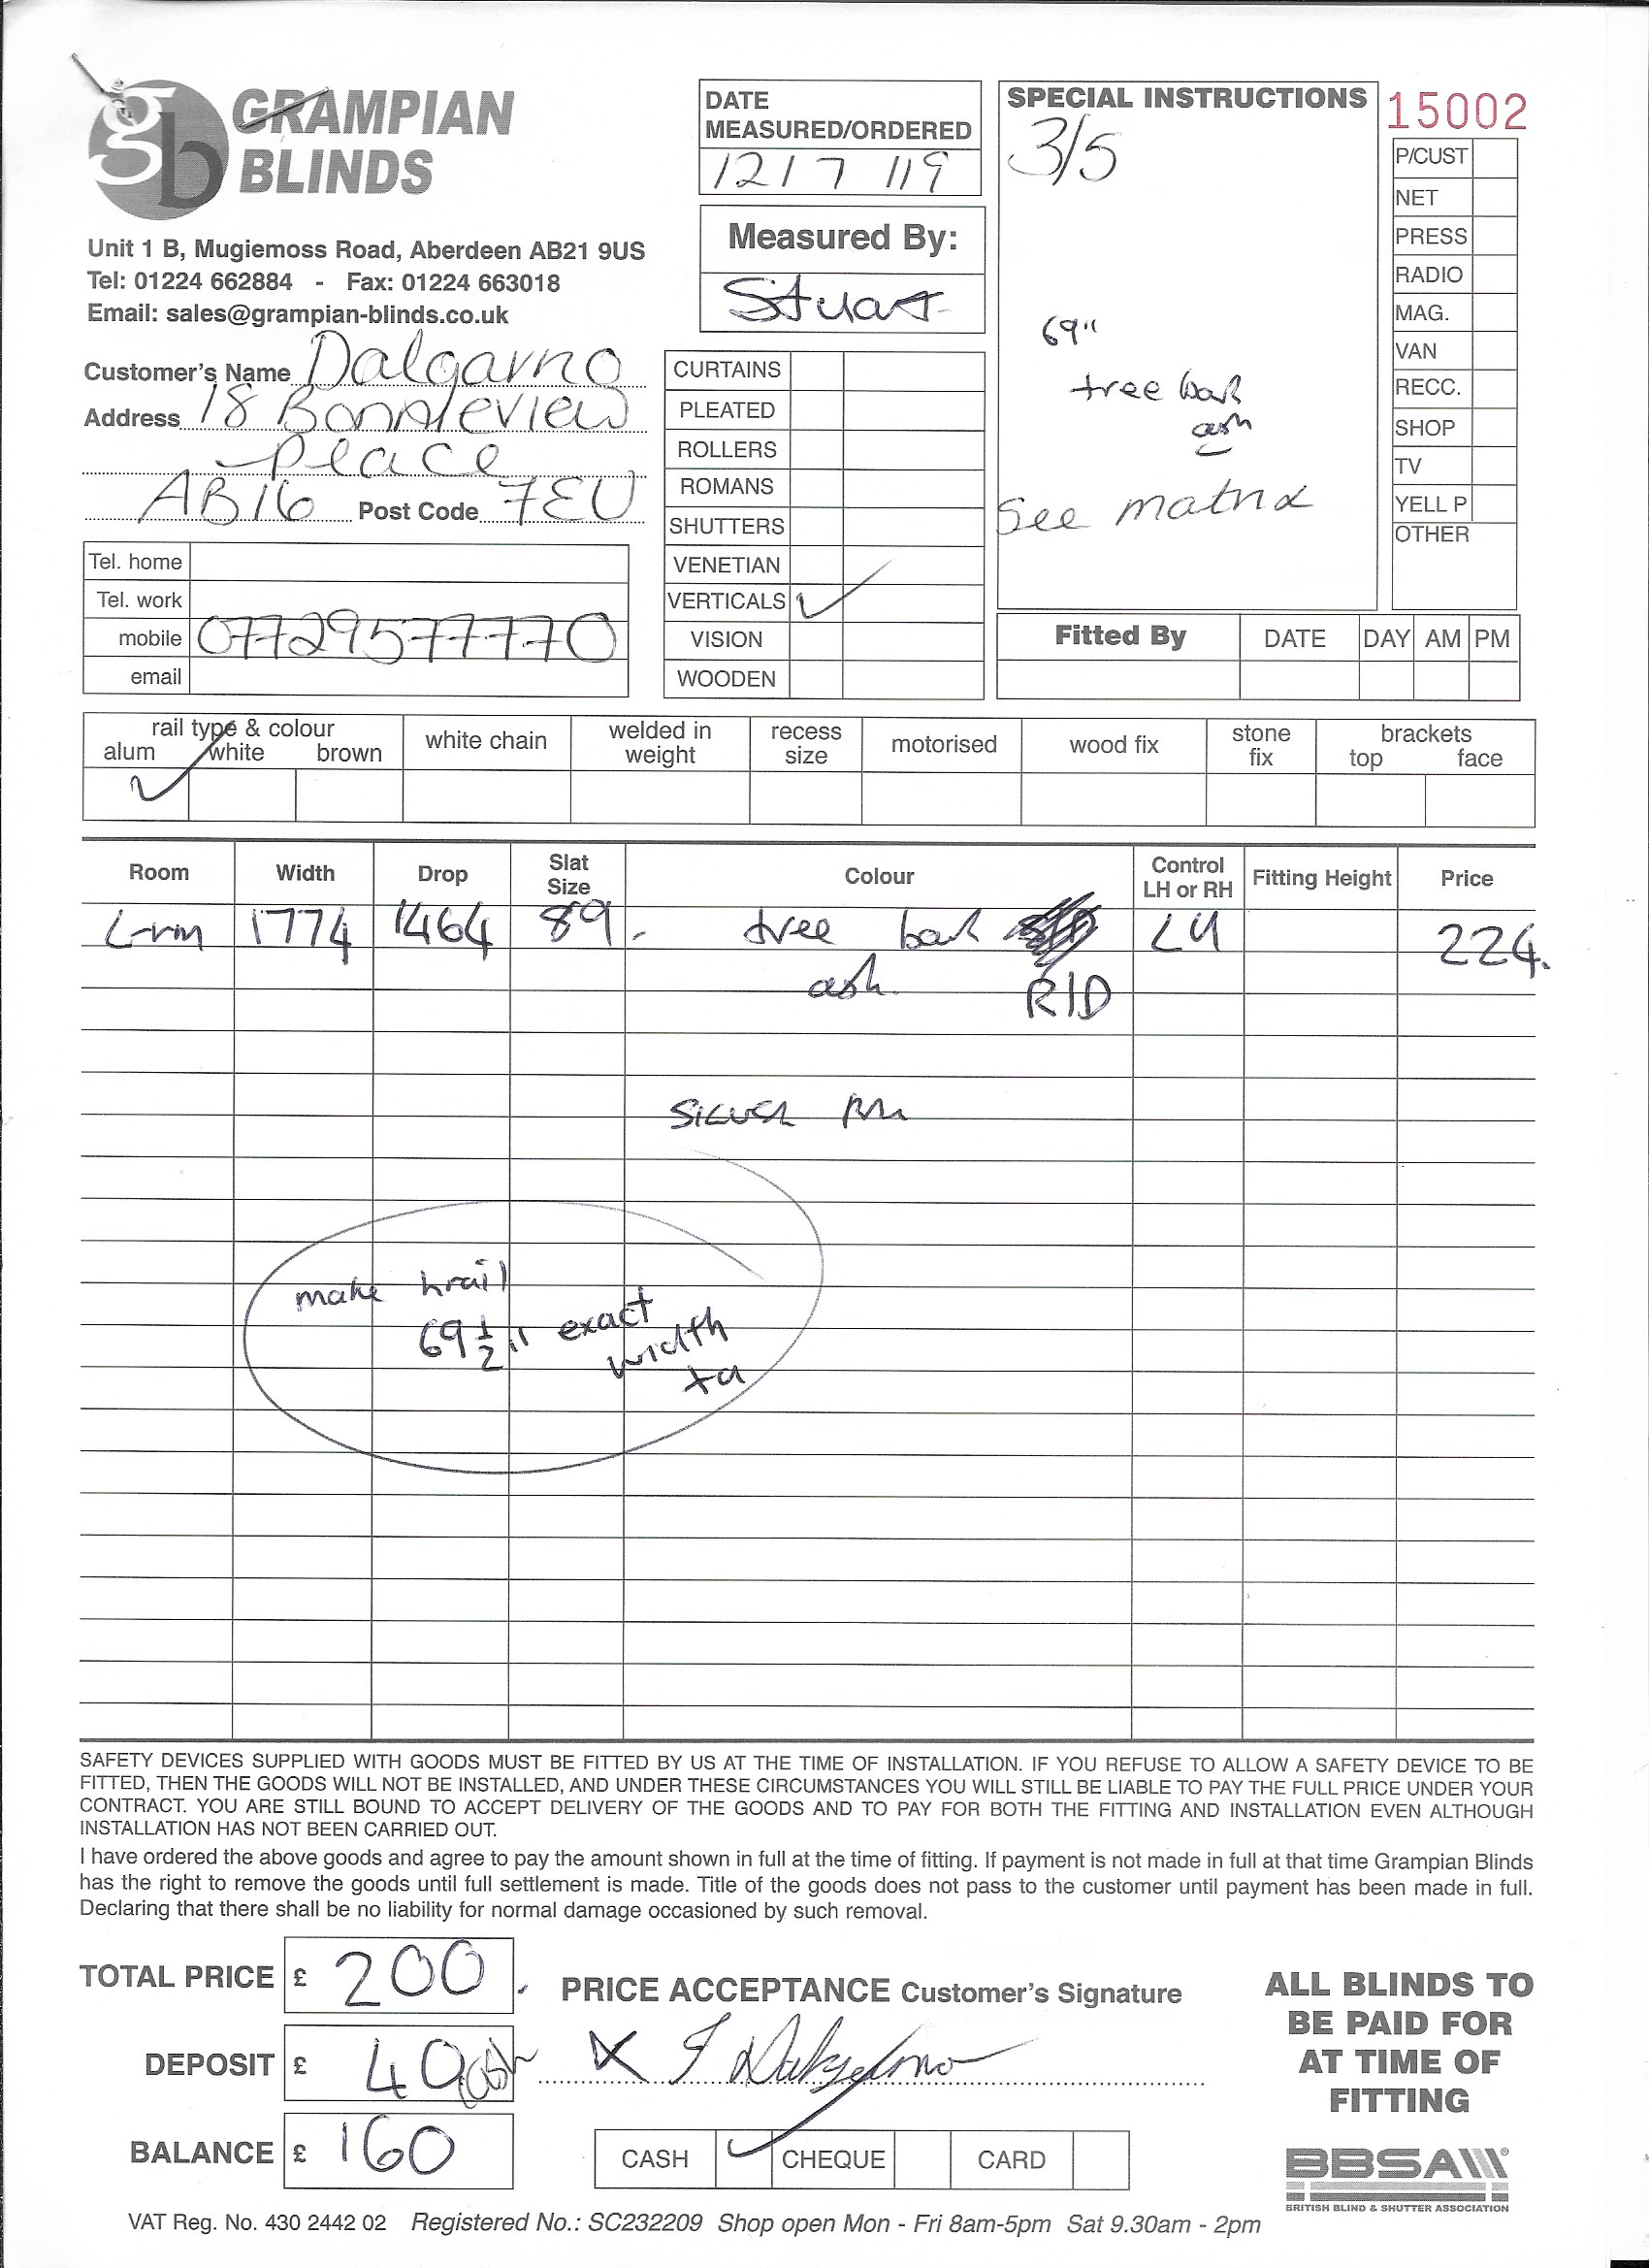 GRAMPIAN
BLINDS
Unit 1 B, Mugiemoss Road, Aberdeen AB21 9US
Tel: 01224 662884 - Fax: 01224 663018
Email: sales@grampian-blinds.co.uk
Customer's Name Dalgarno
Address 18 Bonnieview
Place
AB16 Post Code 7EU
Tel. home
Tel. work
mobile 07729577770
email
DATE
MEASURED/ORDERED
12/7/19
Measured By:
Stuart
CURTAINS
PLEATED
ROLLERS
ROMANS
SHUTTERS
VENETIAN
VERTICALS ✓
VISION
WOODEN
SPECIAL INSTRUCTIONS
3/5
69"
tree bark
ash
See matrix
15002
P/CUST
NET
PRESS
RADIO
MAG.
VAN
RECC.
SHOP
TV
YELL P
OTHER
Fitted By DATE DAY AM PM
rail type & colour
alum white brown
✓
white chain
welded in
weight
recess
size
motorised
wood fix
stone
fix
brackets
top face
Room Width Drop Slat Size Colour Control LH or RH Fitting Height Price
L-rm 1774 1464 89. tree bark LH 224.
ash. R/D
SILVER
make hrail
69 1/2" exact
width
ta
SAFETY DEVICES SUPPLIED WITH GOODS MUST BE FITTED BY US AT THE TIME OF INSTALLATION. IF YOU REFUSE TO ALLOW A SAFETY DEVICE TO BE
FITTED, THEN THE GOODS WILL NOT BE INSTALLED, AND UNDER THESE CIRCUMSTANCES YOU WILL STILL BE LIABLE TO PAY THE FULL PRICE UNDER YOUR
CONTRACT. YOU ARE STILL BOUND TO ACCEPT DELIVERY OF THE GOODS AND TO PAY FOR BOTH THE FITTING AND INSTALLATION EVEN ALTHOUGH
INSTALLATION HAS NOT BEEN CARRIED OUT.
I have ordered the above goods and agree to pay the amount shown in full at the time of fitting. If payment is not made in full at that time Grampian Blinds
has the right to remove the goods until full settlement is made. Title of the goods does not pass to the customer until payment has been made in full.
Declaring that there shall be no liability for normal damage occasioned by such removal.
TOTAL PRICE £ 200.
DEPOSIT £ 40 cash
BALANCE £ 160
PRICE ACCEPTANCE Customer's Signature
X
CASH ✓ CHEQUE CARD
ALL BLINDS TO
BE PAID FOR
AT TIME OF
FITTING
BBSA
BRITISH BLIND & SHUTTER ASSOCIATION
VAT Reg. No. 430 2442 02 Registered No.: SC232209 Shop open Mon - Fri 8am-5pm Sat 9.30am - 2pm